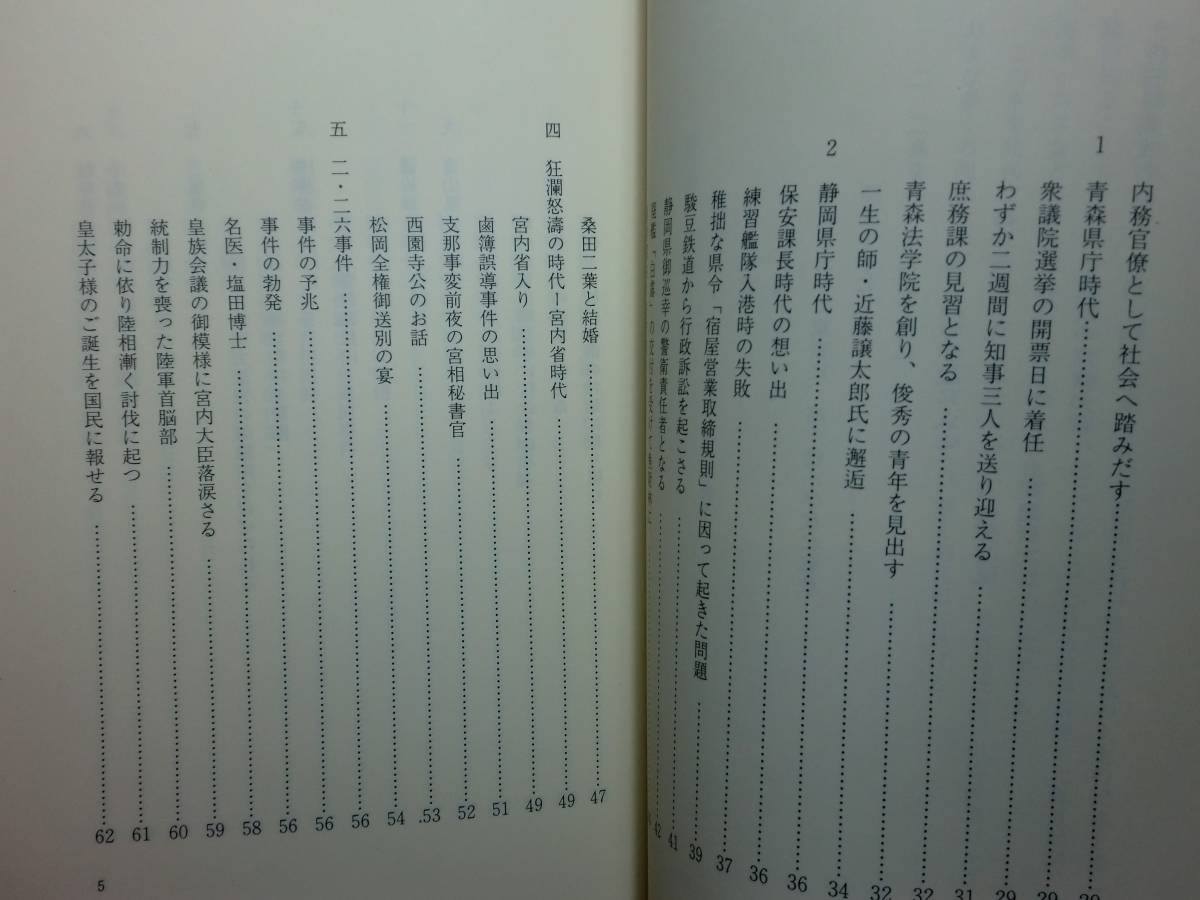 内務官僚として社会へ踏みだす……
1 青森県庁時代……
衆議院選挙の開票日に着任……29
わずか二週間に知事三人を送り迎える……29
庶務課の見習となる……31
青森法学院を創り、俊秀の青年を見出す……32
一生の師・近藤譲太郎氏に邂逅……32
2 静岡県庁時代……34
保安課長時代の想い出……36
練習艦隊入港時の失敗……36
稚拙な県令「宿屋営業取締規則」に因って起きた問題……37
駿豆鉄道から行政訴訟を起こさる……39
静岡県御巡幸の警衛責任者となる……41
42
桑田二葉と結婚……47
四 狂瀾怒濤の時代ー宮内省時代……49
宮内省入り……49
鹵簿誤導事件の思い出……51
支那事変前夜の宮相秘書官……52
西園寺公のお話……53
松岡全権御送別の宴……54
五 二・二六事件……56
事件の予兆……56
事件の勃発……56
名医・塩田博士……58
皇族会議の御模様に宮内大臣落涙さる……59
統制力を喪った陸軍首脳部……60
勅命に依り陸相漸く討伐に起つ……61
皇太子様のご誕生を国民に報せる……62
5